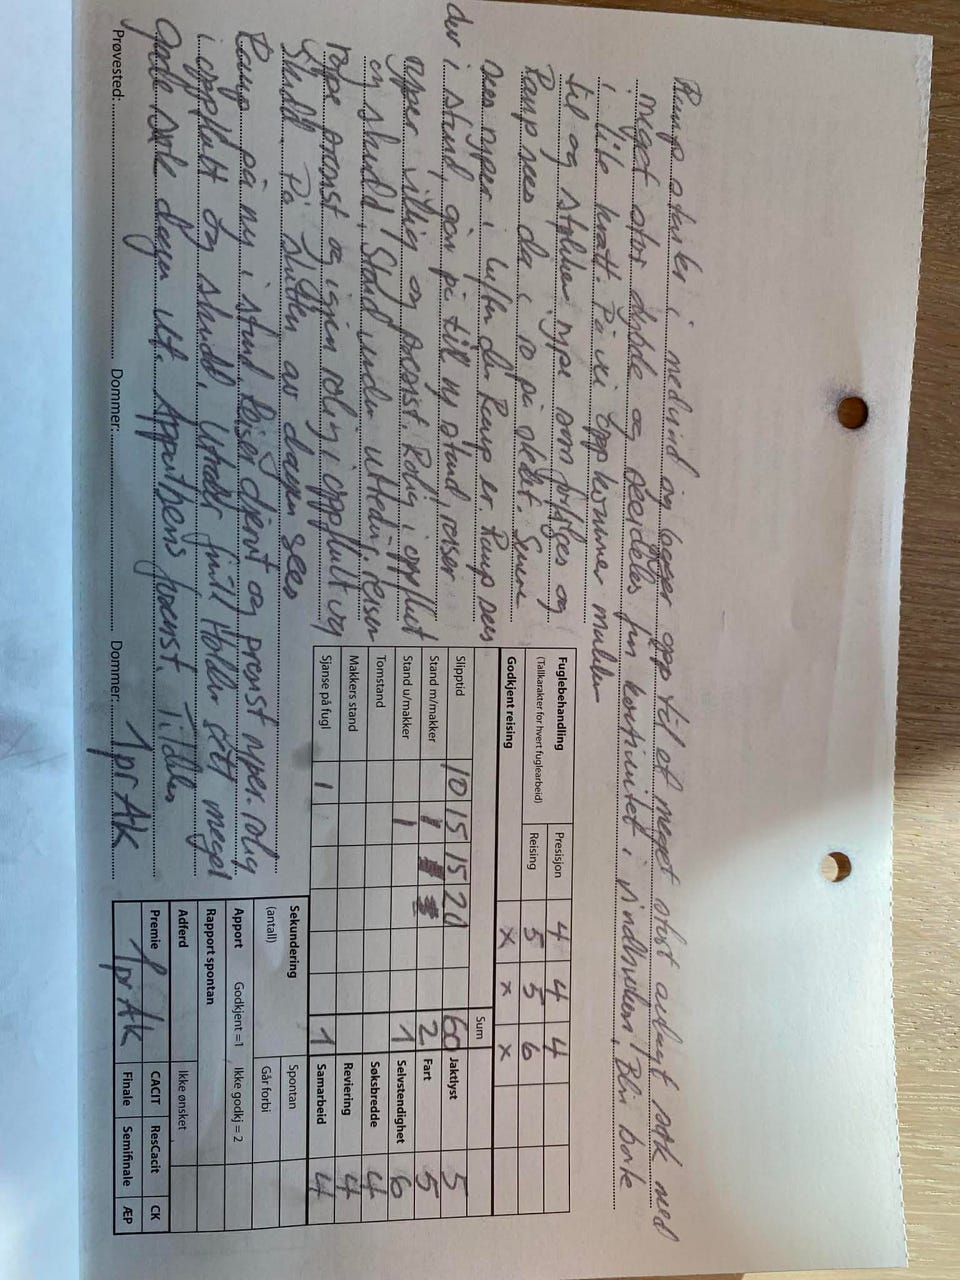 Ramp starter i medvind og legger opp til et meget stort anlagt søk med
meget stor dybde og feeideles fin kontinuitet i vindbruken. Blir borte
i lite kratt. På vei opp kommer makker
til og støkker rype som forfølges og
Ramp sees da i ro på stedet. Senere
sees ryper i luften der Ramp er. Ramp sees
der i stand, går på til ny stand, reiser
ryper villig og presist. Rolig i oppflukt
og skudd. Stand under utredn., reiser
rype presist og igjen rolig i oppflukt og
skudd. På slutten av dagen sees
Ramp på ny i stand. Reiser djervt og presist ryper. rolig
i oppflukt og skudd. Utreder fint! Holder sitt meget
gode søk dagen ut. Apporthens forenst. Tildeles
1 pr AK
Prøvested: Dommer: Dommer:
Fuglebehandling
(Tallkarakter for hvert fuglearbeid)
Presisjon 4 4 4
Reising 5 5 6
Godkjent reising x x x
Sum
Slipptid 10 15 15 20 60
Stand m/makker 1 2
Stand u/makker 1 1
Tomstand
Makkers stand
Sjanse på fugl 1 1
Jaktlyst 5
Fart 5
Selvstendighet 6
Søksbredde 4
Reviering 4
Samarbeid 4
Sekundering
(antall)
Spontan
Går forbi
Apport Godkjent =1 Ikke godkj = 2
Rapport spontan
Adferd Ikke ønsket
Premie 1 pr AK
CACIT ResCacit CK
Finale Semifinale ÆP